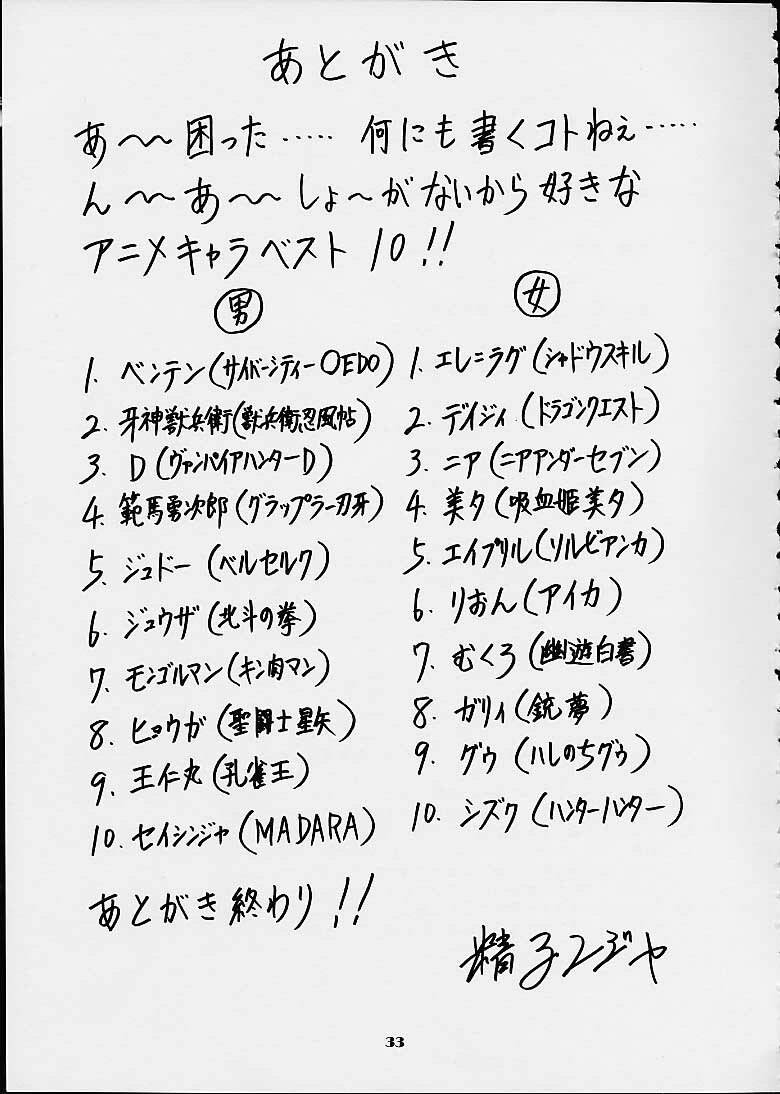 あとがき
あ〜〜困った…… 何にも書くコトねぇ……
ん〜〜あ〜〜しょ〜がないから好きな
アニメキャラベスト10!!
男
1. ベンテン(サイバーシティーOEDO)
2. 牙神獣兵衛(獣兵衛忍風帖)
3. D(ヴァンパイアハンターD)
4. 範馬勇次郎(グラップラー刃牙)
5. ジュドー(ベルセルク)
6. ジュウザ(北斗の拳)
7. モンゴルマン(キン肉マン)
8. ヒョウガ(聖闘士星矢)
9. 王仁丸(孔雀王)
10. セイシンジャ(MADARA)
女
1. エレ=ラグ(シャドウスキル)
2. デイジィ(ドラゴンクエスト)
3. ニア(ニアアンダーセブン)
4. 美夕(吸血姫美夕)
5. エイプリル(ソルビアンカ)
6. りおん(アイカ)
7. むくろ(幽遊白書)
8. ガリィ(銃夢)
9. グゥ(ハレのちグゥ)
10. シズク(ハンターハンター)
あとがき終わり!!
精子ンジャ
33